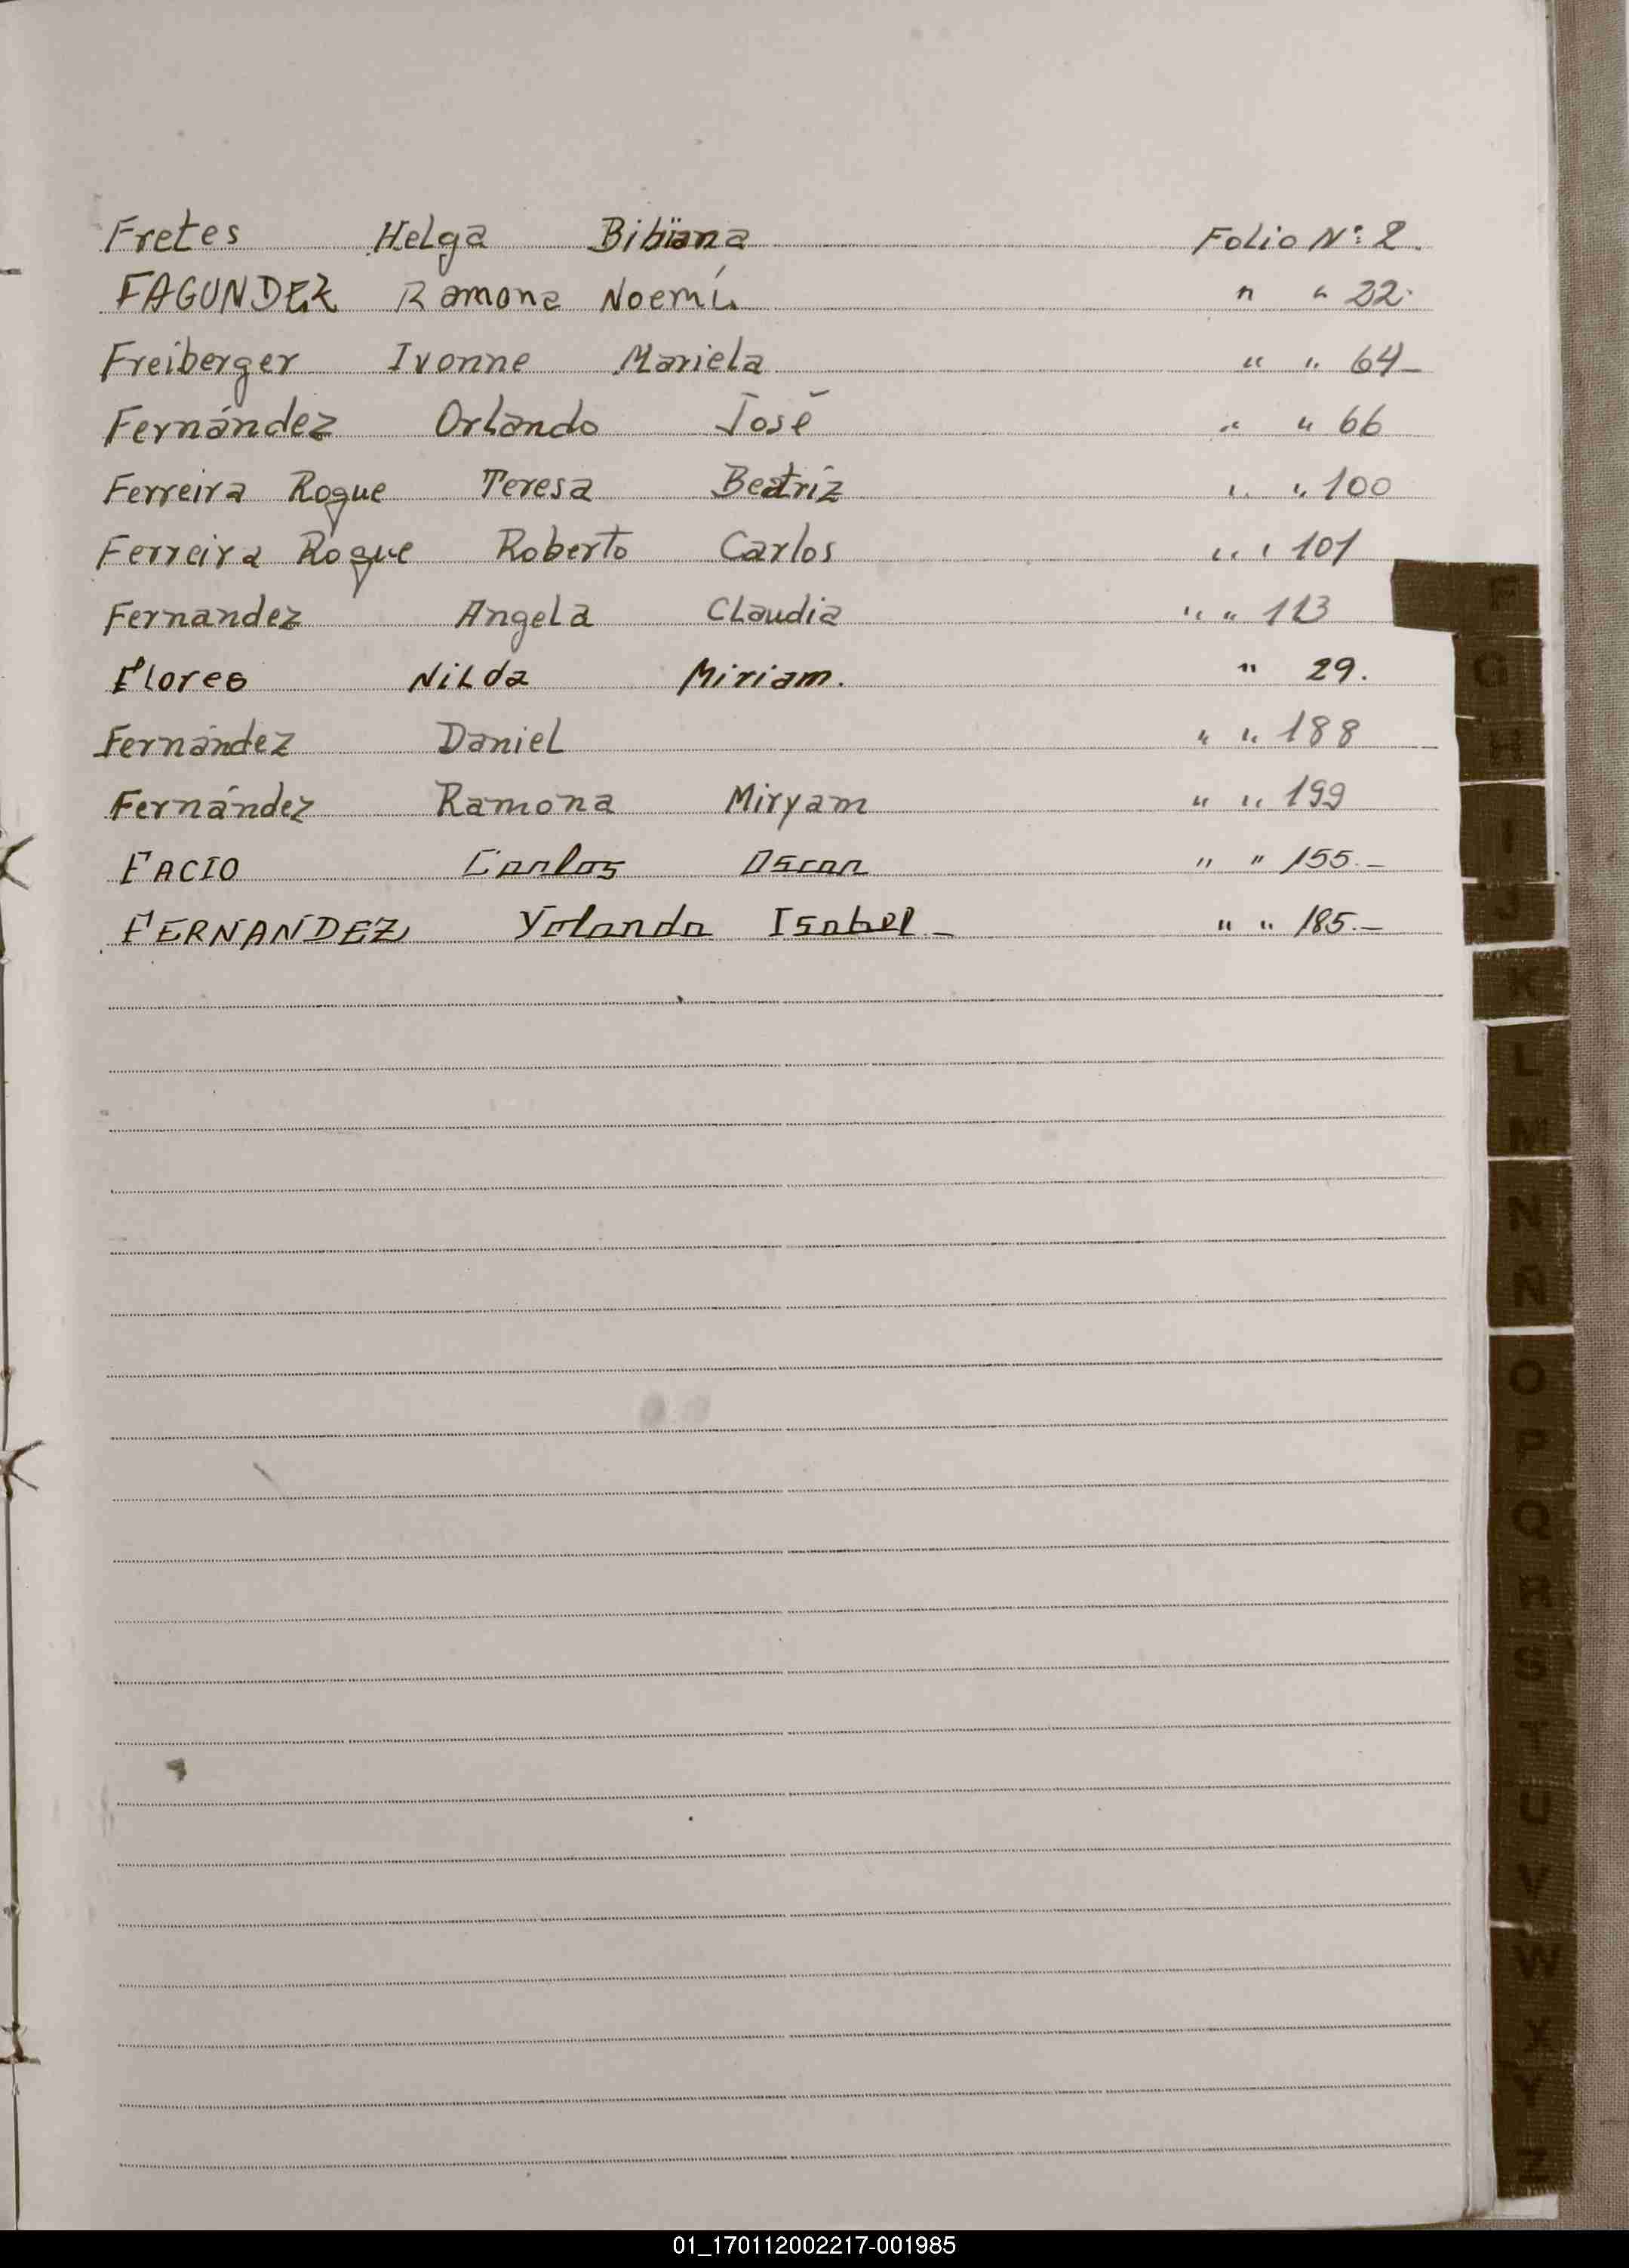 Fretes Helga Bibiana Folio Nº: 2.
FAGUNDEZ Ramona Noemí " " 22.
Freiberger Ivonne Mariela " " 64-
Fernández Orlando José " " 66
Ferreira Roque Teresa Beatríz " " 100
Ferreira Roque Roberto Carlos " " 101
Fernandez Angela Claudia " " 113
Flores Nilda Miriam. " 29.
Fernández Daniel " " 188
Fernández Ramona Miryam " " 199
FACIO Carlos Oscar " " 155.-
FERNANDEZ Yolanda Isabel - " " 185.-
F
G
H
I
J
K
L
M
N
Ñ
O
P
Q
R
S
T
U
V
W
X
Y
Z
01_170112002217-001985